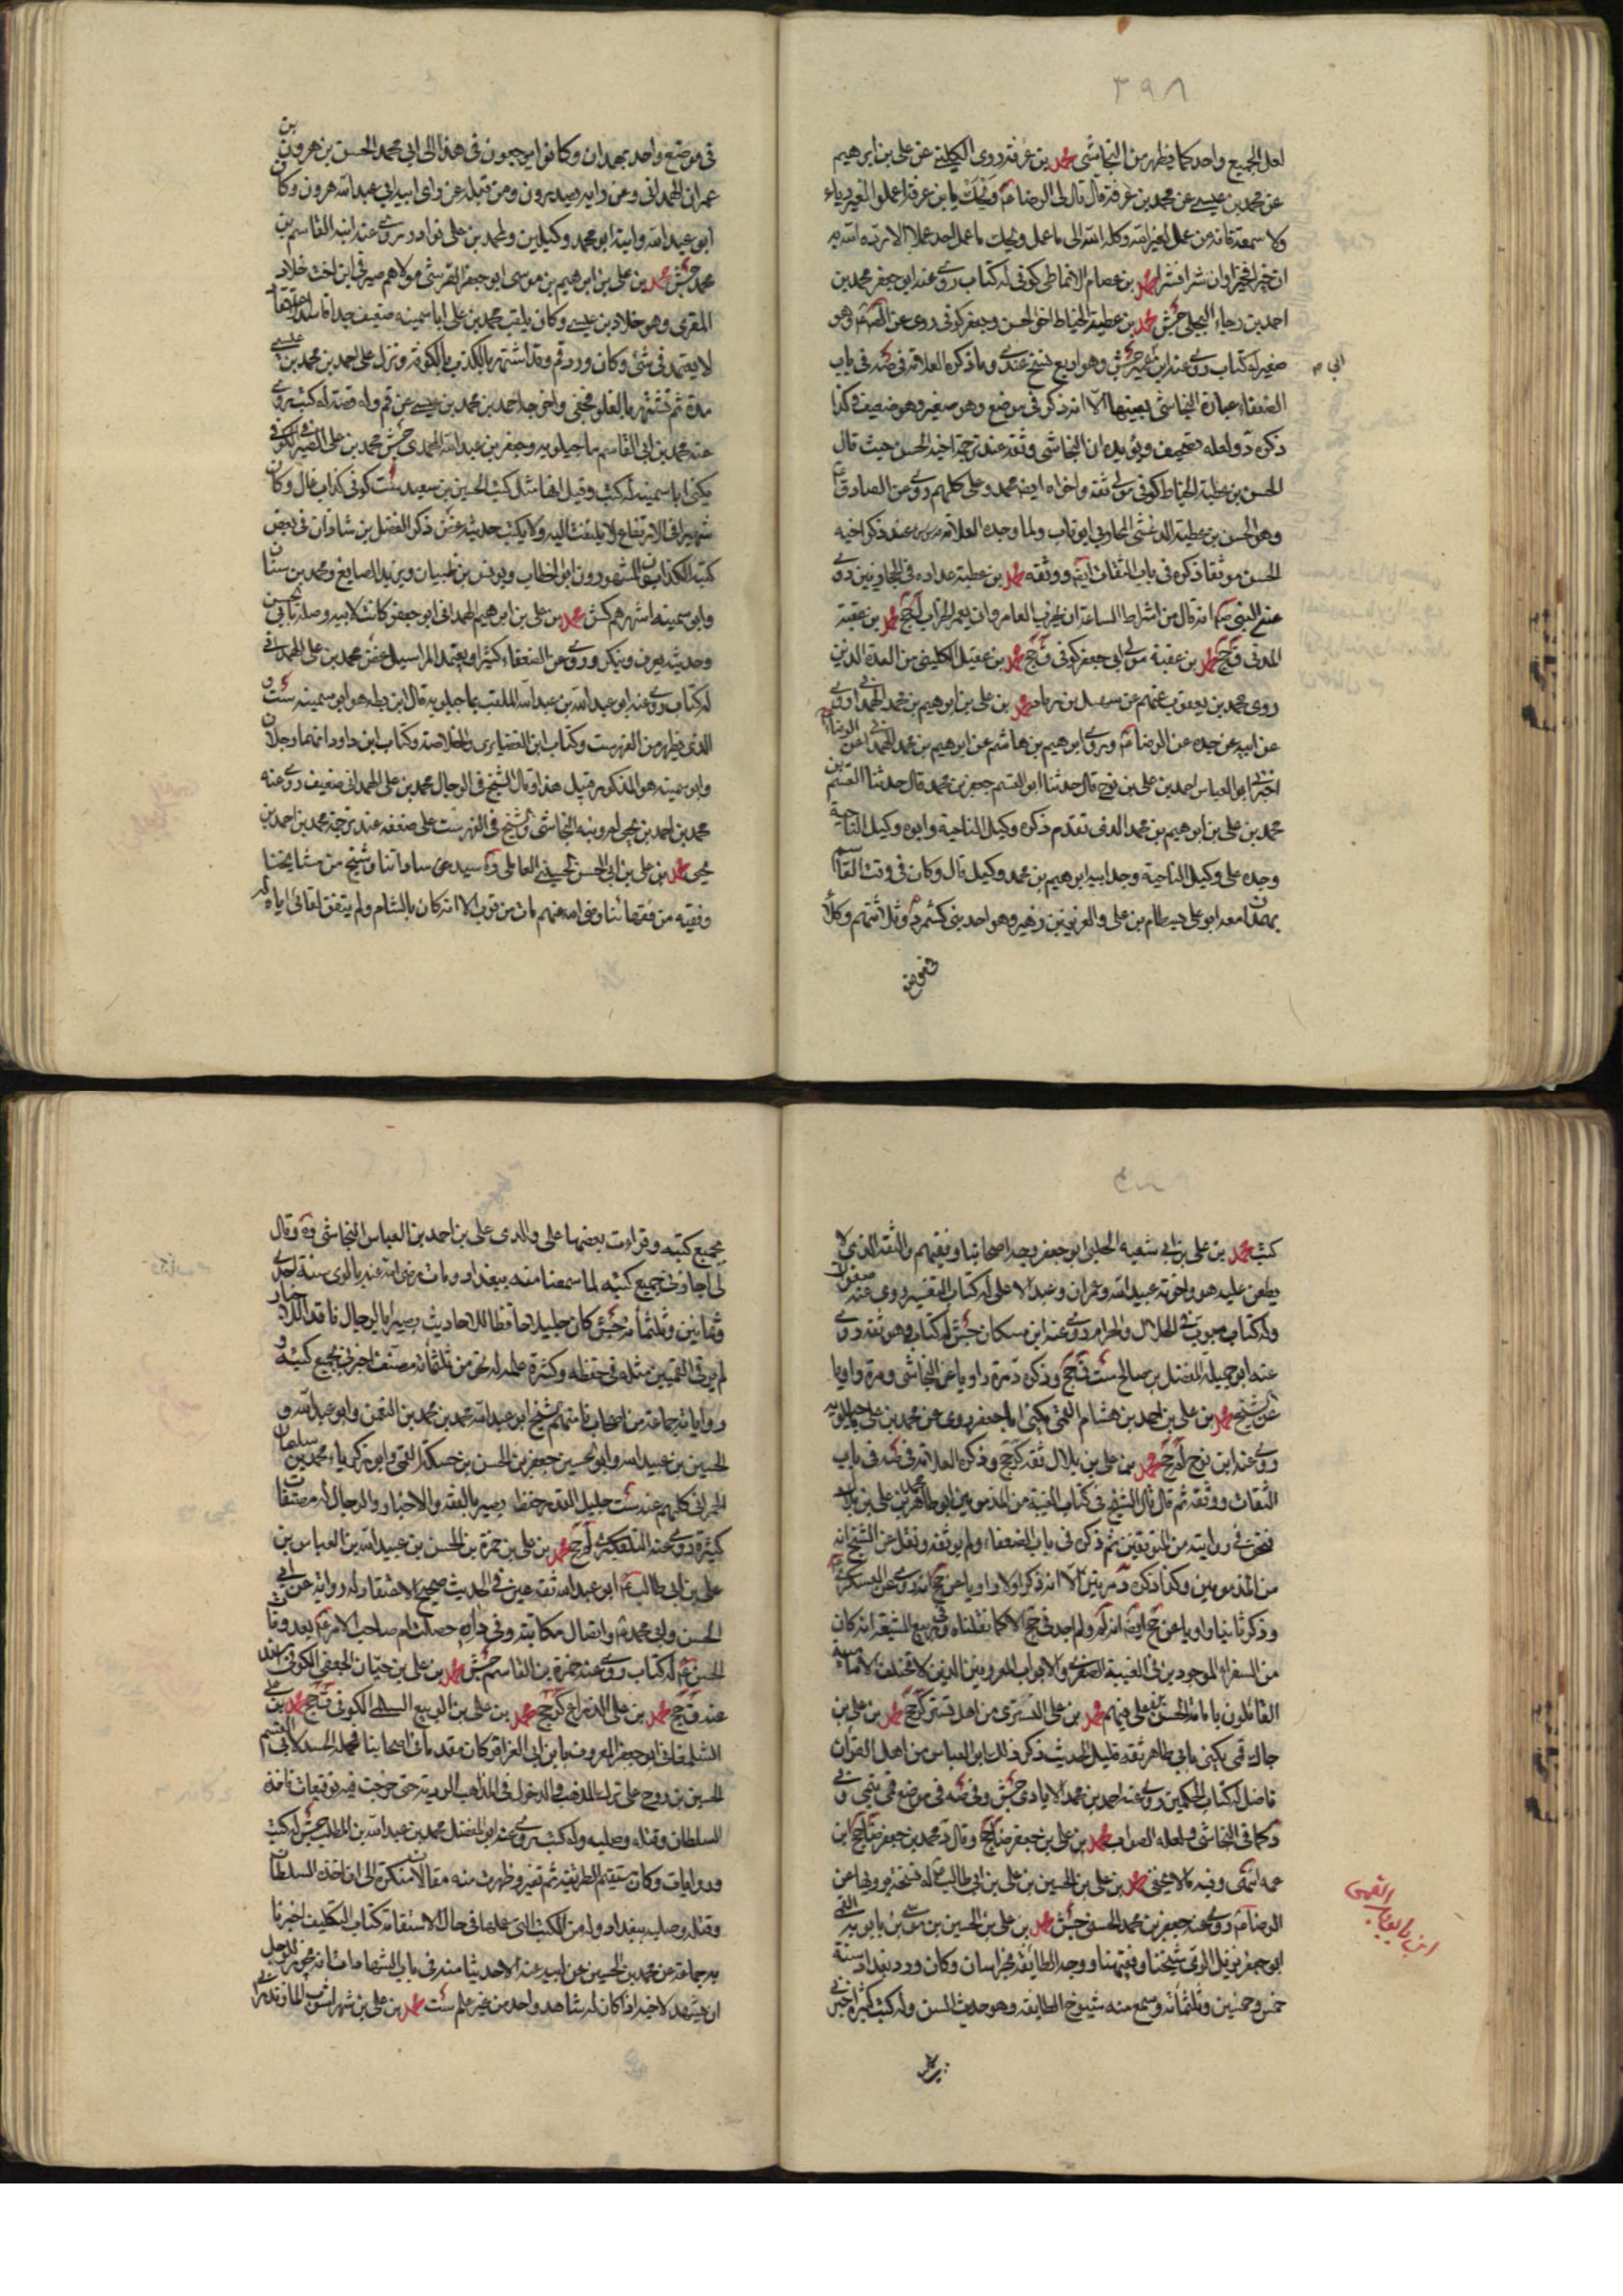 ٣٩٨
لعل الجميع واحد كما يظهر من النجاشى محمد بن عرفة روى الكلينى عن على بن ابرهيم
عن محمد بن عيسى عن محمد بن عرفة قال قال لى الرضا ع ويحك يا بن عرفة اعملوا لغير رياء
ولا سمعة فانه من عمل لغير الله وكله الله الى ما عمل ويحك ما عمل احد عملا الا رده الله به
ان خيرا فخيرا وان شرا فشرا محمد بن عصام الانماطى كوفى له كتاب روى عنه ابو جعفر محمد بن
احمد بن رجاء البجلى جش محمد بن عطية الحناط اخو الحسن وجعفر كوفى روى عن الصم وهو
صغير له كتاب روى عنه ابن عمير جش وهو اربع نسخ عندى وما ذكره العلامة فى صه فى باب
ابى م
الضعفاء عبارة النجاشى بعينها الا انه ذكر فى موضع وهو صغير وهو ضعيف وكذا
ذكره د ولعله تصحيف ويؤيده ان النجاشى وثقه عند ترجمة اخيه الحسن حيث قال
الحسن بن عطية الحناط كوفى مولى ثقة واخواه ايضا محمد وعلى كلهم روى عن الصادق ع
وهو الحسن بن عطية الدغشى المحاربى ابو ناب ولما وحده العلامة عند ذكر اخيه
الحسن موثقا ذكره فى باب الثقات ايضا ووثقه محمد بن عطية عداده فى الحاربين روى
عنه النبى ص انه قال من اشراط الساعة ان يخرب العامر وان يعمر الخراب لج محمد بن عقبة
المدنى ق جخ محمد بن عقبة مولى ابى جعفر كوفى ق جخ محمد بن عقيل الكلينى من العدة الذين
روى محمد بن يعقوب عنهم عن سهل بن زياد محمد بن على بن ابرهيم بن محمد الهمدانى روى
عن ابيه عن جده عن الرضا ع وروى ابرهيم بن هاشم عن ابرهيم بن محمد الهمدانى عن الرضا ع
اخبرنى ابو العباس احمد بن على بن نوح قال حدثنا ابو القسم جعفر بن محمد قال حدثنا القسم بن
محمد بن على بن ابرهيم بن محمد الذى تقدم ذكره وكيل الناحية وابوه وكيل الناحية
وجده على وكيل الناحية وجد ابيه ابرهيم بن محمد وكيل قال وكان فى وقت القاسم
بهمدان معه ابو على بسطام بن على والعزيز بن زهير وهو احد بنى كشمرد وثلاثتهم وكلا
فى موضع
فى موضع واحد بهمدان وكانوا يرجعون فى هذا الى ابى محمد الحسن بن هرون بن
عمران الهمدانى وعن رايه يصدرون ومن قبله عن راى ابيه ابى عبد الله هرون وكان
ابو عبد الله وابنه ابو محمد وكيلين ولمحمد بن على نوادر روى عنه ابنه القاسم بن
محمد جش محمد بن على بن ابرهيم بن موسى ابو جعفر القرشى مولاهم صيرفى ابن اخت خلاد
المقرى وهو خلاد بن عيسى وكان يلقب محمد بن على ابا سمينة ضعيف جدا فاسد الاعتقاد
لا يعتمد فى شئ وكان ورد قم وقد اشتهر بالكذب بالكوفة ونزل على احمد بن محمد بن عيسى
مدة ثم تشتهر بالغلو فخفى واخرجه احمد بن محمد بن عيسى عن قم وله قصة له كتب روى
عنه محمد بن ابى القاسم ماجيلويه وجعفر بن عبد الله المحمدى جش محمد بن على الصيرفى الكوفى
يكنى ابا سمينة له كتب وقيل انها مثل كتب الحسين بن سعيد ست كوفى كذاب غال وكان
شهيرا فى الارتفاع لا يلتفت اليه ولا يكتب حديثه غض ذكر الفضل بن شاذان فى بعض
كتبه الكذابون المشهورون ابو الخطاب ويونس بن ظبيان ويزيد الصايغ ومحمد بن سنان
وابو سمينة اشهرهم كش محمد بن على بن ابرهيم الهمدانى ابو جعفر كانت لابيه وصلة بابى الحسن
وحديثه يعرف وينكر وروى عن الضعفاء كثيرا ويعتمد المراسيل غض محمد بن على الهمدانى
له كتاب روى عنه ابو عبد الله بن عبد الله الملقب بماجيلويه قال ابن بطة هو ابو سمينة ست و
الذى يظهر من الفهرست وكتاب ابن الغضايرى والخلاصة وكتاب ابن داود انهما رجلان
وابو سمينة هو المذكور قبيل هذا وقال الشيخ فى الرجال محمد بن على الهمدانى ضعيف روى عنه
محمد بن احمد بن يحيى لم ونبه النجاشى والشيخ فى الفهرست على ضعفه عند ترجمة محمد بن احمد بن
يحيى محمد بن على بن ابى الحسن الحسينى العاملى ره سيد من ساداتنا وشيخ من مشايخنا
وفقيه من فقهائنا رضى الله عنهم مات من قرب الا انه كان بالشام ولم يتفق لقائى اياه له
كتب محمد بن على بن ابى شعبة الحلبى ابو جعفر وجه اصحابنا وفقيههم والثقة الذى لا
يطعن عليه هو واخوته عبيد الله وعمران وعبد الاعلى له كتاب التفسير روى عنه صفوان
وله كتاب مبوب فى الحلال والحرام روى عنه ابن مسكان جش له كتاب وهو ثقة روى
عنه ابو جميلة المفضل بن صالح ست ق جخ وذكره د مرة راويا عن النجاشى ومرة راويا
عن الشيخ محمد بن على بن احمد بن هشام القمى يكنى ابا جعفر يروى عن محمد بن على ماجيلويه
روى عنه ابن نوح لم جخ محمد بن على بن بلال ثقة كر جخ وذكره العلامة فى صه فى باب
الثقات ووثقه ثم قال قال الشيخ فى كتاب الغيبة من المذمومين ابو طاهر محمد بن على بن بلال
فنحن فى روايته من المتوقفين ثم ذكره فى باب الضعفاء ولم يوثقه ونقل عن الشيخ انه
من المذمومين وكذا ذكره د مرتين الا انه ذكر اولا راويا عن جخ انه روى عن العسكرى ع
وذكر ثانيا راويا عن جخ ايضا انه لم ولم اجد فى جخ الا كما نقلناه وفى ربيع الشيعة انه كان
من السفراء الموجودين فى الغيبة الصغرى والابواب المعروفين الذين لا تختلف الامامية
القائلون بامامة الحسن بن على فيهم محمد بن على التسترى من اهل تستر كر جخ محمد بن على بن
جاك قمى يكنى بابى طاهر ثقة قليل الحديث ذكر ذلك ابو العباس من اهل القران
فاضل له كتاب الحكمين روى عنه احمد بن محمد الايادى جش وفى صه فى موضع قمى تيمى وفى
د كما فى النجاشى ولعله الصواب محمد بن على بن جعفر ضا جخ وقال د محمد بن جعفر ضا جخ ابن
عمه انتهى وفيه ما لا يخفى محمد بن على بن الحسين بن على بن ابى طالب ع له نسخة يرويها عن
الرضا ع روى عنه جعفر بن محمد الحسنى جش محمد بن على بن الحسين بن موسى بن بابويه القمى
ابو جعفر نزيل الرى شيخنا وفقيهنا ووجه الطائفة بخراسان وكان ورد بغداد سنة
ابن بابويه القمى
خمس وخمسين وثلثمائة وسمع منه شيوخ الطايفة وهو حدث السن وله كتب كثيرة اخبرنى
بجميع كتبه وقرات بعضها على والدى على بن احمد بن العباس النجاشى ره وقال
لى اجازنى جميع كتبه لما سمعنا منه ببغداد ومات رضى الله عنه بالرى سنة احدى
وثمانين وثلثمائة جش كان جليلا حافظا للاحاديث بصيرا بالرجال ناقدا للاخبار
لم ير فى القميين مثله فى حفظه وكثرة علمه له نحو من ثلثمائة مصنف اخبرنى بجميع كتبه و
رواياته جماعة من اصحابنا منهم الشيخ ابو عبد الله محمد بن محمد بن النعمن وابو عبد الله و
الحسين بن عبيد الله وابو الحسين جعفر بن الحسن بن حسكة القمى وابو زكرياء محمد بن سليمان
الحمرانى كلهم عنه ست جليل القدر حفظة بصير بالفقه والاخبار والرجال له مصنفات
كثيرة روى عنه التلعكبرى لم جخ محمد بن على بن حمزة بن الحسن بن عبيد الله بن العباس بن
على بن ابى طالب ع ابو عبد الله ثقة عين فى الحديث صحيح الاعتقاد له رواية عن ابى
الحسن وابى محمد ع واتصال مكاتبة وفى داره حصلت ام صاحب الامر ع بعد وفات
الحسن ع له كتاب روى عنه حمزة بن القاسم جش محمد بن على بن حيان الجعفى الكوفى اسند
عنه ق جخ محمد بن على الذراع كر جخ محمد بن على بن الربيع السلمى الكوفى ق جخ محمد بن على
الشلمغانى ابو جعفر المعروف بابن ابى العزاقر كان متقدما فى اصحابنا فحمله الحسد لابى القسم
الحسين بن روح على ترك المذهب والدخول فى المذاهب الردية حتى خرجت فيه توقيعات فاخذه
السلطان وقتله وصلبه وله كتب روى عنه ابو المفضل محمد بن عبد الله بن المطلب جش له كتب
وروايات وكان مستقيم الطريقة ثم تغير وظهرت منه مقالات منكرة الى ان اخذه السلطان
وقتله وصلبه ببغداد وله من الكتب التى عملها فى حال الاستقامة كتاب التكليف اخبرنا
به جماعة عن محمد بن الحسين عن ابيه عنه الا حديثا منه فى باب الشهادات انه يجوز للرجل
ان يشهد لاخيه اذا كان له شاهد واحد من غير علم ست محمد بن على بن شهراشوب المازندرانى